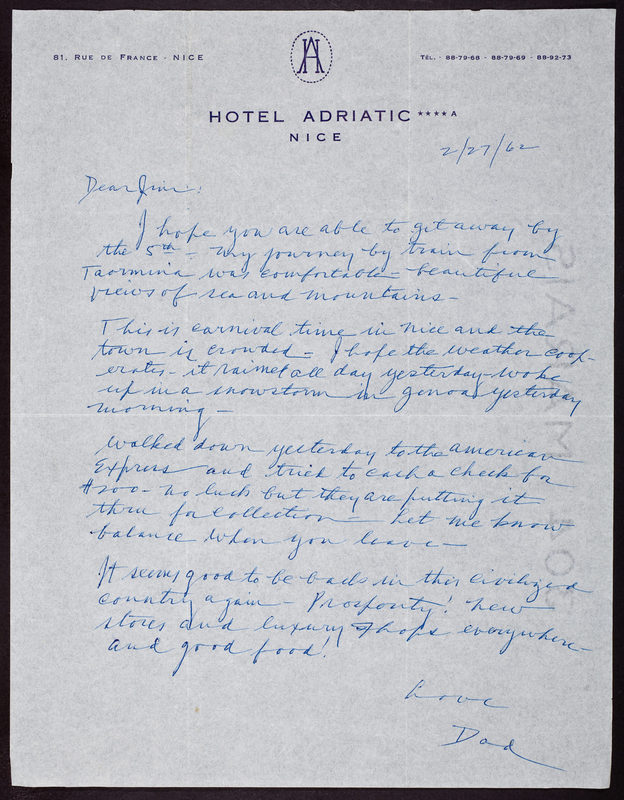 81, RUE DE FRANCE - NICE
AH
TÉL. · 88-79-68 · 88-79-69 · 88-92-73
HOTEL ADRIATIC ****A
NICE
2/27/62
Dear Jim:
I hope you are able to get away by
the 5th – my journey by train from
Taormina was comfortable – beautiful
views of sea and mountains –
This is carnival time in Nice and the
town is crowded – I hope the weather coop-
erates – it rained all day yesterday – woke
up in a snowstorm in genoa yesterday
morning –
Walked down yesterday to the american
Express and tried to cash a check for
$200 – no luck but they are putting it
thru for collection – Let me know
balance when you leave –
It seems good to be back in this civilized
country again – Prosperity! new
stores and luxury shops everywhere –
and good food!
Love
Dad